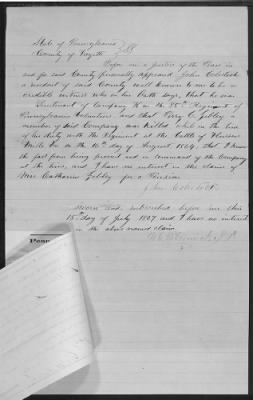 State of Pennsylvania
County of Fayette } SS
Before me a justice of the Peace in
and for said County personally appeared John
a resident of said County well known to me to be a
credible witness who on his Oath says, that he was
Lieutenant of Company K on the 85th Regiment of
Pennsylvania Volunteers, and that Perry C.
member of said Company was killed while in the line
of his duty with the Regiment at the Battle of
on the 16th day of August 1864, that I know
the fact from being present and in command of the Company
at the time, and I have no interest in the claim of
Mrs Catharine for a Pension
John
Sworn and subscribed before me this
15th day of July 1867 and I have no interest
in the above named claim
Penn